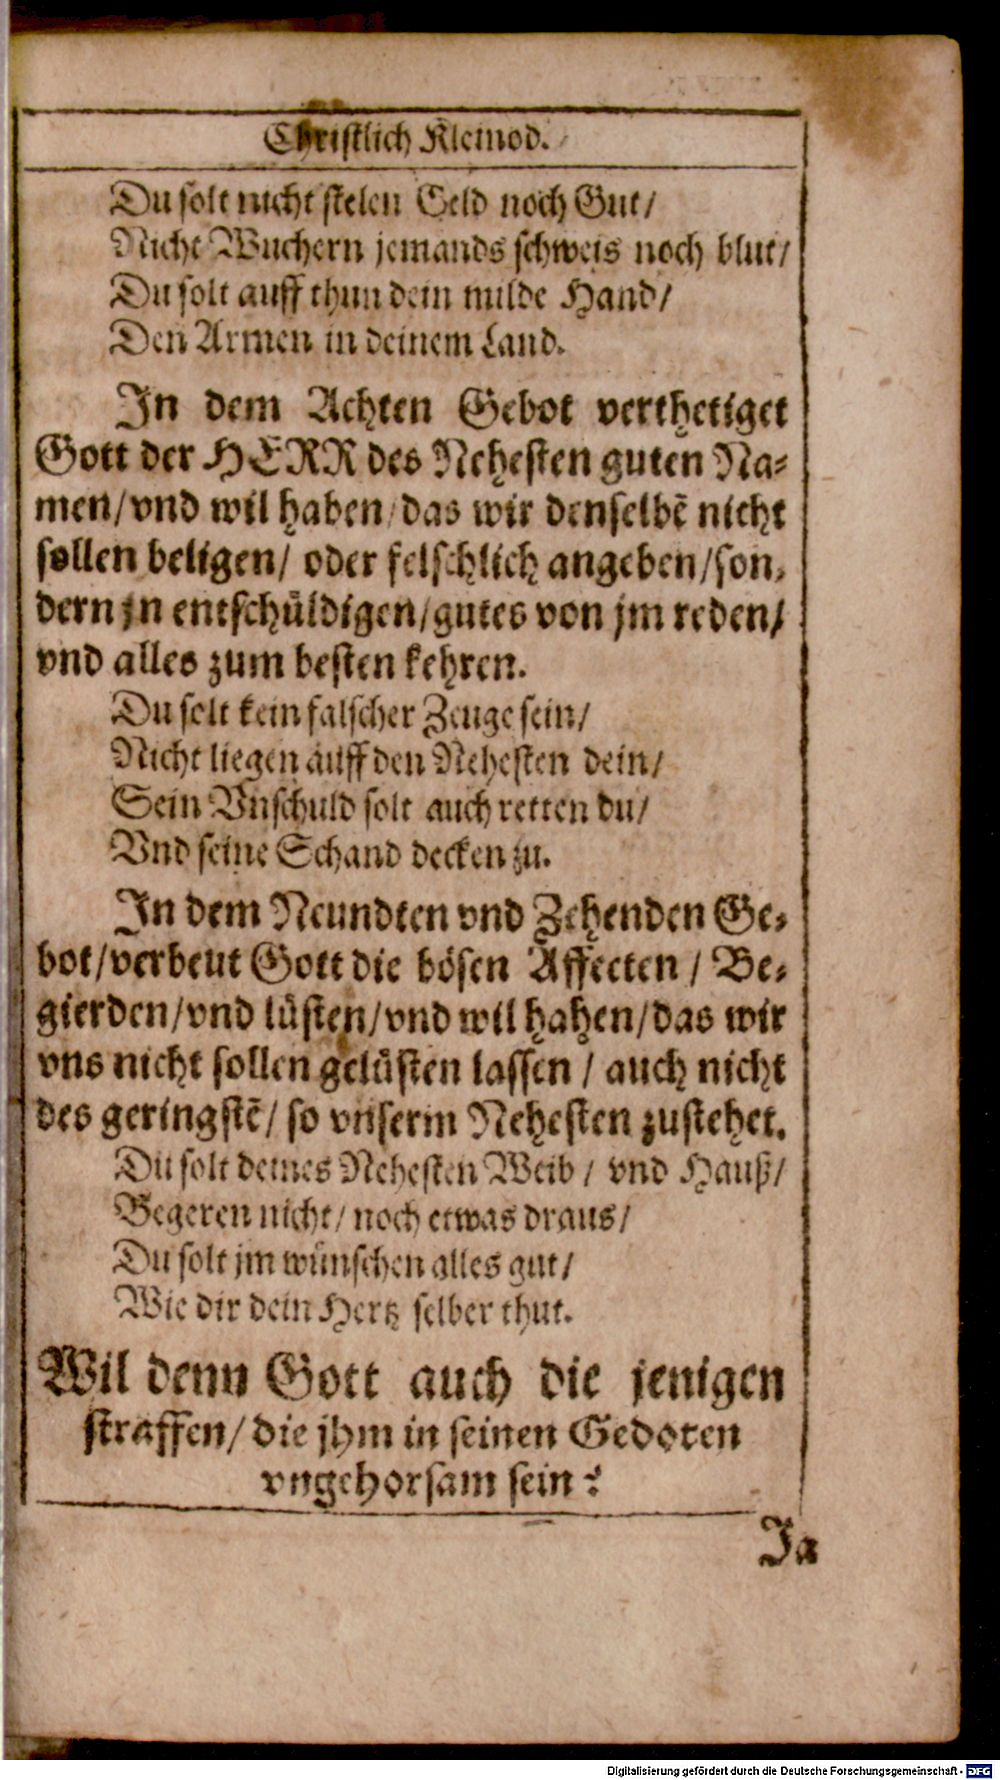 Christlich Kleinod.
Du solt nicht stelen Geld noch Gut/
Nicht Wuchern jemands schweis noch blut/
Du solt auff thun dein milde Hand/
Den Armen in deinem Land.
In dem Achten Gebot verthetiget
Gott der HERR des Nehesten guten Na⸗
men/vnd wil haben/das wir denselbẽ nicht
sollen beligen/ oder felschlich angeben/son⸗
dern jn entschüldigen/gutes von jm reden/
vnd alles zum besten kehren.
Du solt kein falscher Zeuge sein/
Nicht liegen auff den Nehesten dein/
Sein Vnschuld solt auch retten du/
Vnd seine Schand decken zu.
In dem Neundten vnd Zehenden Ge⸗
bot/verbeut Gott die bösen Affecten / Be⸗
gierden/vnd lüsten/vnd wil hahen/das wir
vns nicht sollen gelüsten lassen / auch nicht
des geringstẽ/ so vnserm Nehesten zustehet.
Du solt deines Nehesten Weib / vnd Hauß/
Begeren nicht/ noch etwas draus/
Du solt jm wünschen alles gut/
Wie dir dein Hertz selber thut.
Wil denn Gott auch die jenigen
straffen/ die jhm in seinen Geboten
vngehorsam sein?
Ja
Digitalisierung gefördert durch die Deutsche Forschungsgemeinschaft - DFG